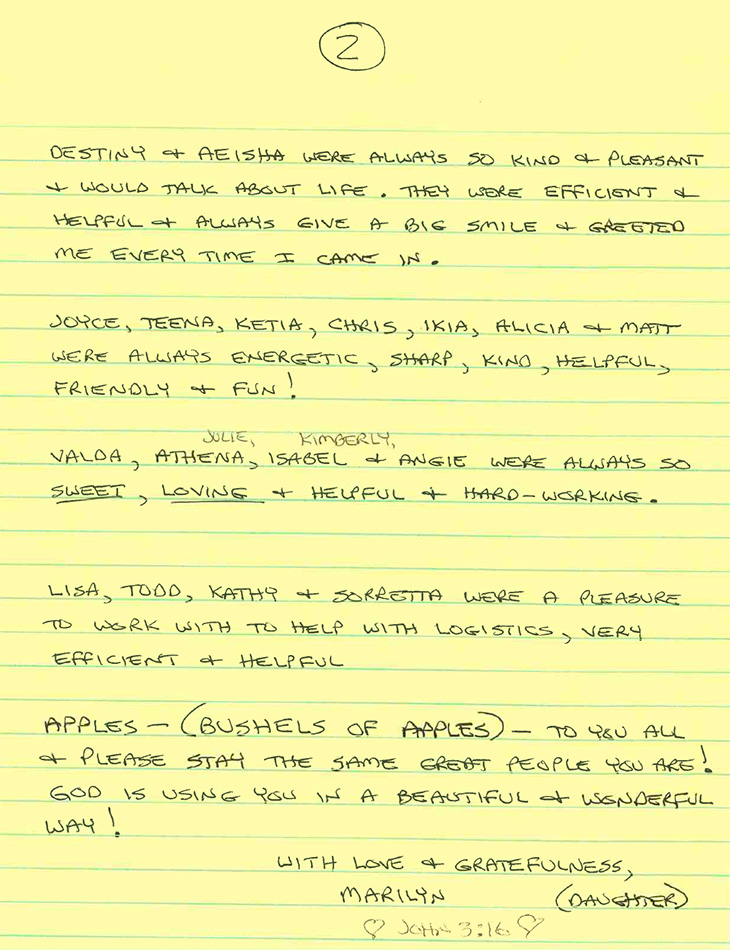 2
DESTINY & AEISHA WERE ALWAYS SO KIND & PLEASANT
& WOULD TALK ABOUT LIFE. THEY WERE EFFICIENT &
HELPFUL & ALWAYS GIVE A BIG SMILE & GREETED
ME EVERY TIME I CAME IN.
JOYCE, TEENA, KETIA, CHRIS, IKIA, ALICIA & MATT
WERE ALWAYS ENERGETIC, SHARP, KIND, HELPFUL,
FRIENDLY & FUN!
JULIE, KIMBERLY,
VALDA, ATHENA, ISABEL & ANGIE WERE ALWAYS SO
SWEET, LOVING & HELPFUL & HARD-WORKING.
LISA, TODD, KATHY & SORRETTA WERE A PLEASURE
TO WORK WITH TO HELP WITH LOGISTICS, VERY
EFFICIENT & HELPFUL
APPLES - (BUSHELS OF APPLES) - TO YOU ALL
& PLEASE STAY THE SAME GREAT PEOPLE YOU ARE!
GOD IS USING YOU IN A BEAUTIFUL & WONDERFUL
WAY!
WITH LOVE & GRATEFULNESS,
MARILYN (DAUGHTER)
♡ JOHN 3:16 ♡